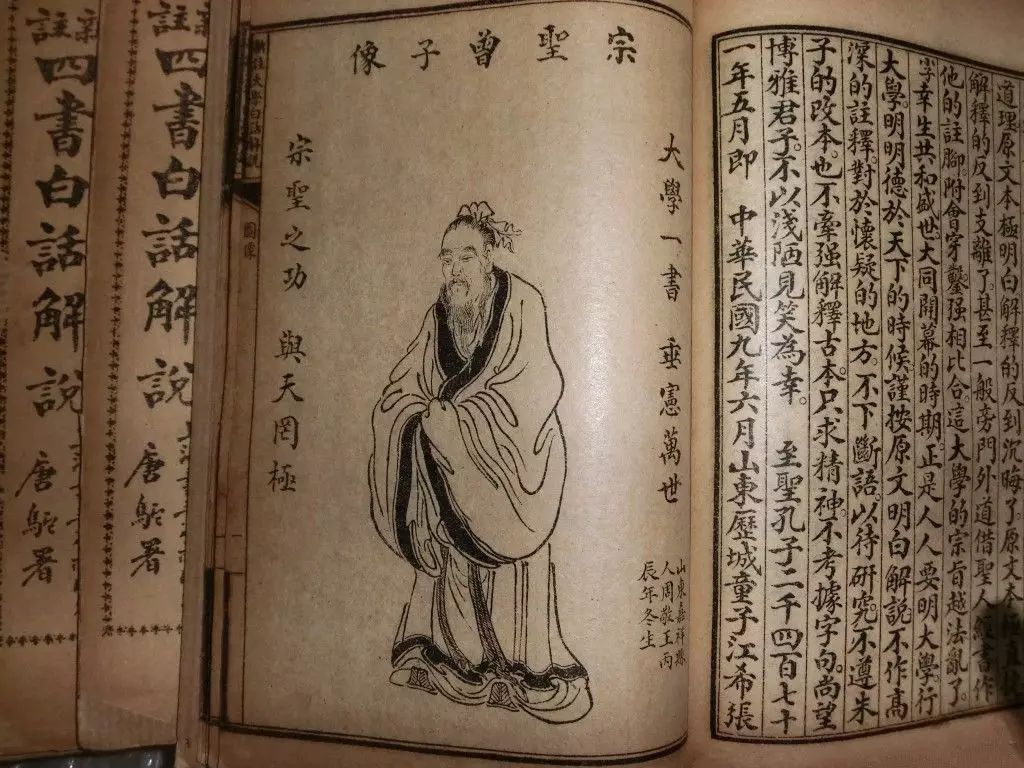 道理原文本極明白解釋的反到沉晦了。原文本
解釋的反到支離了。甚至一般旁門外道借聖人經書作
他的註腳。附會穿鑿强相比合。這大學的宗旨越法亂了。
幸生共和盛世大同開幕的時期正是人人要明大學行
大學。明明德於天下的時候謹按原文明白解說不作高
深的註釋。對於懷疑的地方。不下斷語。以待研究。不遵朱
子的改本。也不牽强解釋古本。只求精神。不考據字句。尚望
博雅君子。不以淺陋見笑為幸。　至聖孔子二千四百七十
一年五月即　中華民國九年六月山東歷城童子江希張
宗聖曾子像
大學一書　垂憲萬世
山東嘉祥縣
人周敬王丙
辰年冬生
宗聖之功　與天罔極
新註大學白話解說
圖像
一
註四書白話解說
唐駝署
註四書白話解說
唐駝署